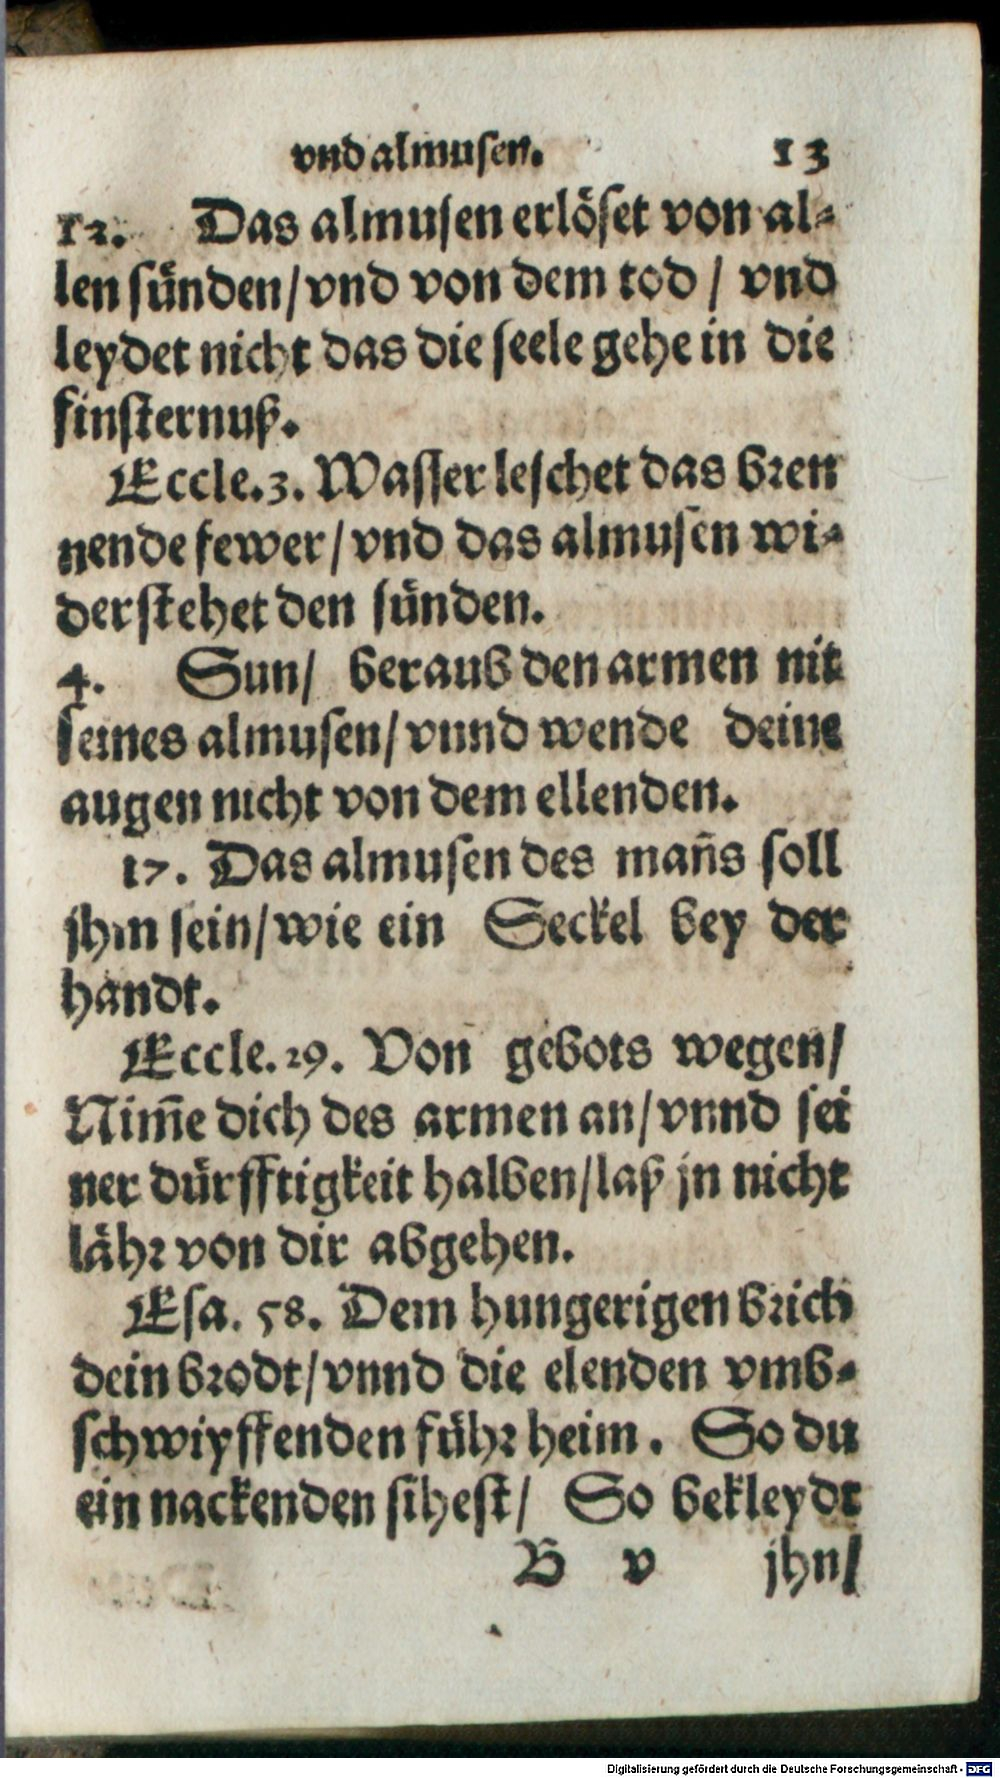 vnd almusen. 13
12. Das almusen erlöset von al-
len sünden/vnd von dem tod / vnd
leydet nicht das die seele gehe in die
finsternuß.
Eccle.3. Wasser leschet das bren
nende fewer/vnd das almusen wi-
derstehet den sünden.
4. Sun/ beraub den armen nit
seines almusen/vnnd wende deine
augen nicht von dem ellenden.
17. Das almusen des mañs soll
jhm sein/wie ein Seckel bey der
handt.
Eccle.29. Von gebots wegen/
Nim̃e dich des armen an/vnnd sei
ner dürfftigkeit halben/laß jn nicht
lähr von dir abgehen.
Esa. 58. Dem hungerigen brich
dein brodt/vnnd die elenden vmb-
schwiyffenden führ heim. So du
ein nackenden sihest/ So bekleydt
B v jhn/
Digitalisierung gefördert durch die Deutsche Forschungsgemeinschaft - DFG